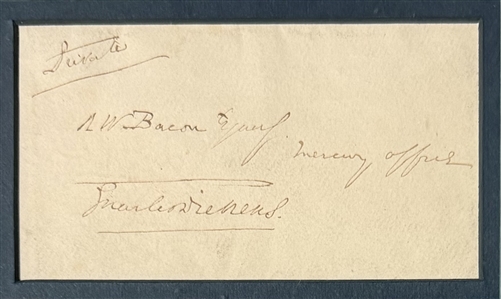 Private
R W Bacon Esquire
Mercury Office
Charles Dickens.